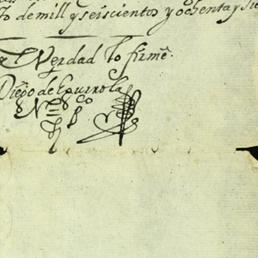 to de mill y seiscientos y ochenta y sie
Verdad lo firme.
Diego de